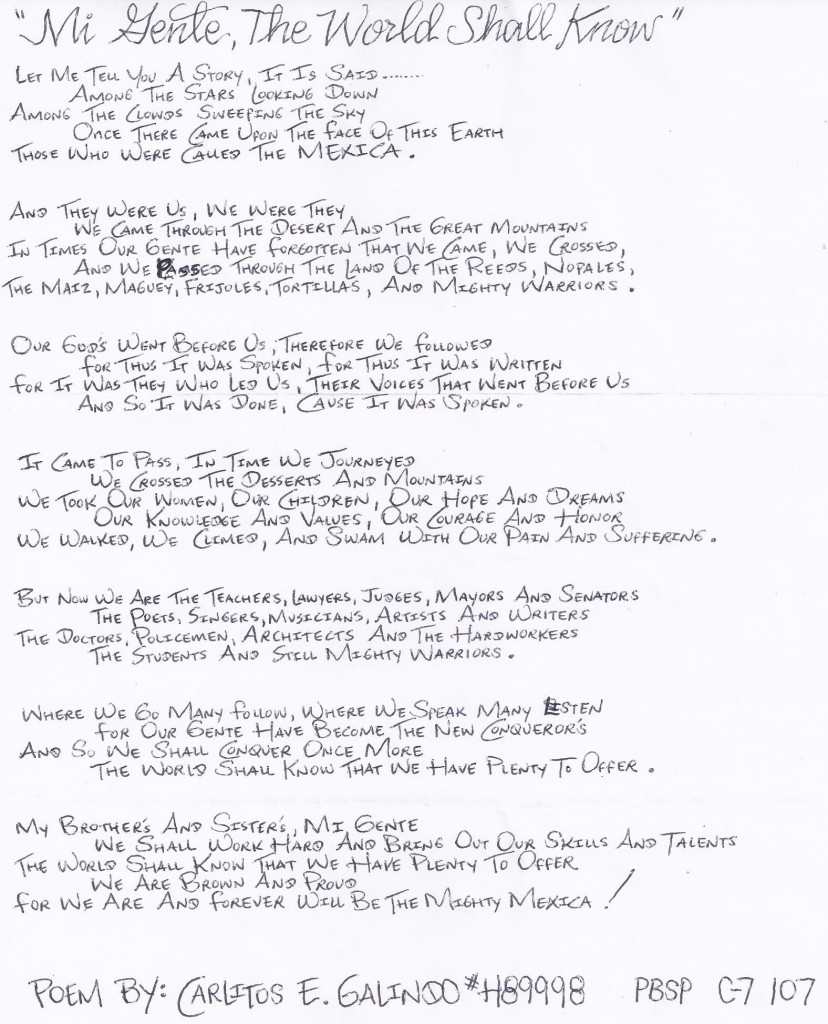 "Mi Gente, The World Shall Know"
Let Me Tell You A Story, It Is Said........
Among The Stars Looking Down
Among The Clowds Sweeping The Sky
Once There Came Upon The Face Of This Earth
Those Who Were Called The MEXICA.
And They Were Us, We Were They
We Came Through The Desert And The Great Mountains
In Times Our Gente Have Forgotten That We Came, We Crossed,
And We Passed Through The Land Of The Reeds, Nopales,
The Maiz, Maguey, Frijoles, Tortillas, And Mighty Warriors.
Our God's Went Before Us, Therefore We Followed
For Thus It Was Spoken, For Thus It Was Written
For It Was They Who Led Us, Their Voices That Went Before Us
And So It Was Done, Cause It Was Spoken.
It Came To Pass, In Time We Journeyed
We Crossed The Desserts And Mountains
We Took Our Women, Our Children, Our Hope And Dreams
Our Knowledge And Values, Our Courage And Honor
We Walked, We Climed, And Swam With Our Pain And Suffering.
But Now We Are The Teachers, Lawyers, Judges, Mayors And Senators
The Poets, Singers, Musicians, Artists And Writers
The Doctors, Policemen, Architects And The Hardworkers
The Students And Still Mighty Warriors.
Where We Go Many Follow, Where We Speak Many Listen
For Our Gente Have Become The New Conqueror's
And So We Shall Conquer Once More
The World Shall Know That We Have Plenty To Offer.
My Brother's And Sister's, Mi Gente
We Shall Work Hard And Bring Out Our Skills And Talents
The World Shall Know That We Have Plenty To Offer
We Are Brown And Proud
For We Are And Forever Will Be The Mighty Mexica!
POEM BY: CARLITOS E. GALINDO #H89998 PBSP C-7 107